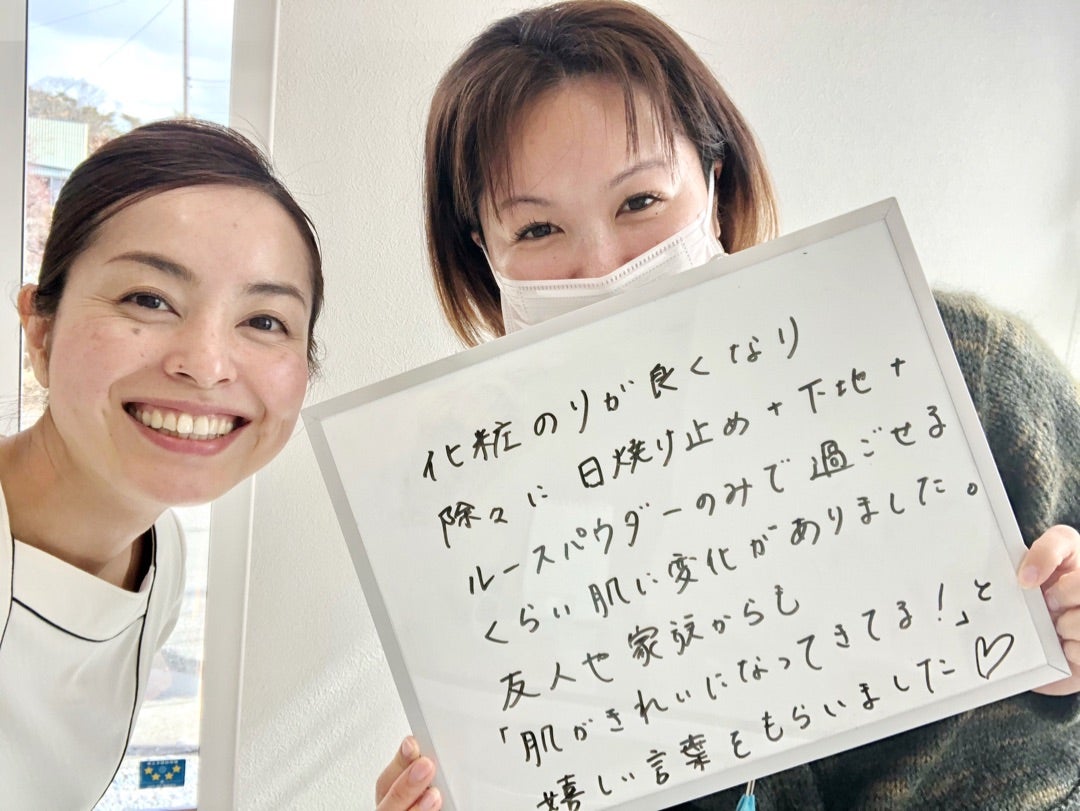 化粧のりが良くなり
除々に 日焼け止め+下地+
ルースパウダーのみで過ごせる
くらい肌に変化がありました。
友人や家族からも
「肌がきれいになってきてる!」と
嬉しい言葉をもらいました♡